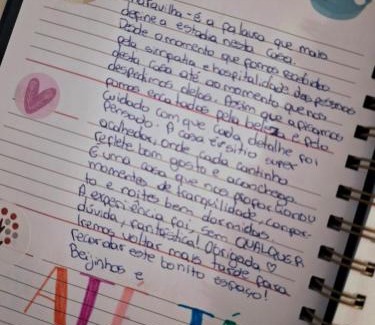 maravilha - é a palavra que mais
define a estadia nesta casa.
Desde o momento que fomos recebidos
pela simpatia e hospitalidade das pessoas
desta casa até ao momento que nos
despedimos delas. Assim que a pisamos
fomos encantados pela beleza e pelo
cuidado com que cada detalhe foi
pensado. A casa é sítio super
acolhedor, onde cada cantinho
reflete bom gosto e aconchego.
É uma casa que nos proporcionou
momentos de tranquilidade, confor-
to e noites bem dormidas.
A experiência foi, sem QUALQUER
dúvida, fantástica! Obrigada ♡
Iremos voltar mais tarde para
recordar este bonito espaço!
Beijinhos e
ATÉ